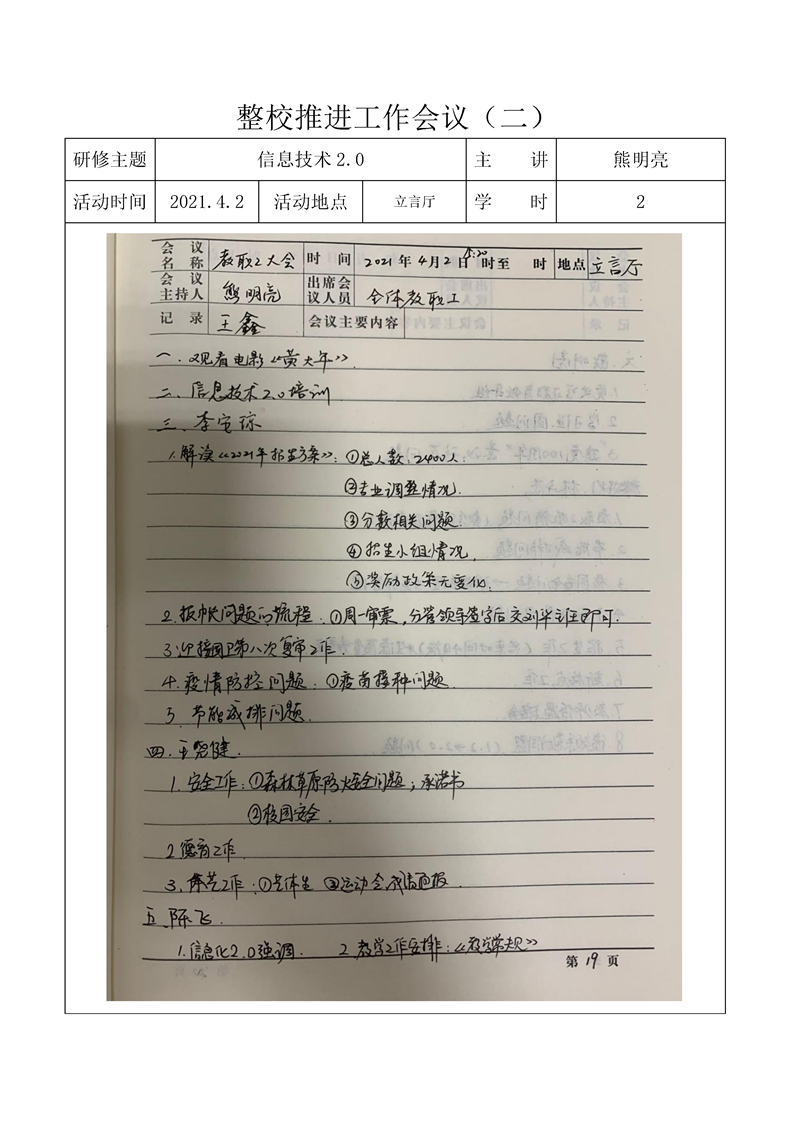 整校推进工作会议（二）
研修主题 信息技术2.0 主 讲 熊明亮
活动时间 2021.4.2 活动地点 立言厅 学 时 2
会议名称 教职工大会 时间 2021年4月2日 时至 时 地点 立言厅
会议主持人 熊明亮 出席会议人员 全体教职工
记录 王鑫 会议主要内容
一. 观看电影《黄大年》.
二. 信息技术2.0培训
三. 李宝琼
1. 解读《2021年招生方案》: ①总人数: 2400人.
②专业调整情况.
③分数相关问题.
④招生小组情况.
⑤奖励政策无变化.
2. 报帐问题的流程. ①周一审票, 分管领导签字后交刘半主任即可.
3. 迎接国卫第八次复审工作.
4. 疫情防控问题: ①疫苗接种问题.
5. 节能减排问题.
四. 王尧健.
1. 安全工作: ①森林草原防火安全问题; 承诺书
②校园安全.
2. 德育工作.
3. 体艺工作: ①艺体生 ②运动会
五. 陈飞.
1. 信息化2.0强调. 2. 教学工作安排: 《教学常规》
第19页